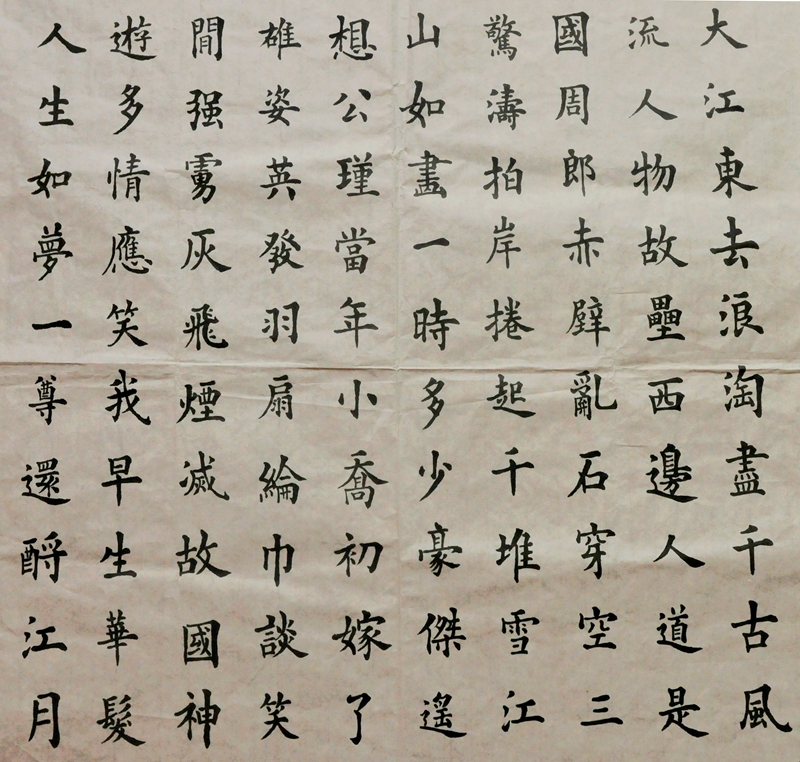 大江東去浪淘盡千古風
流人物故壘西邊人道是
國周郎赤壁亂石穿空三
驚濤拍岸捲起千堆雪江
山如畫一時多少豪傑遙
想公瑾當年小喬初嫁了
雄姿英發羽扇綸巾談笑
間强虜灰飛煙滅故國神
遊多情應笑我早生華髮
人生如夢一尊還酹江月